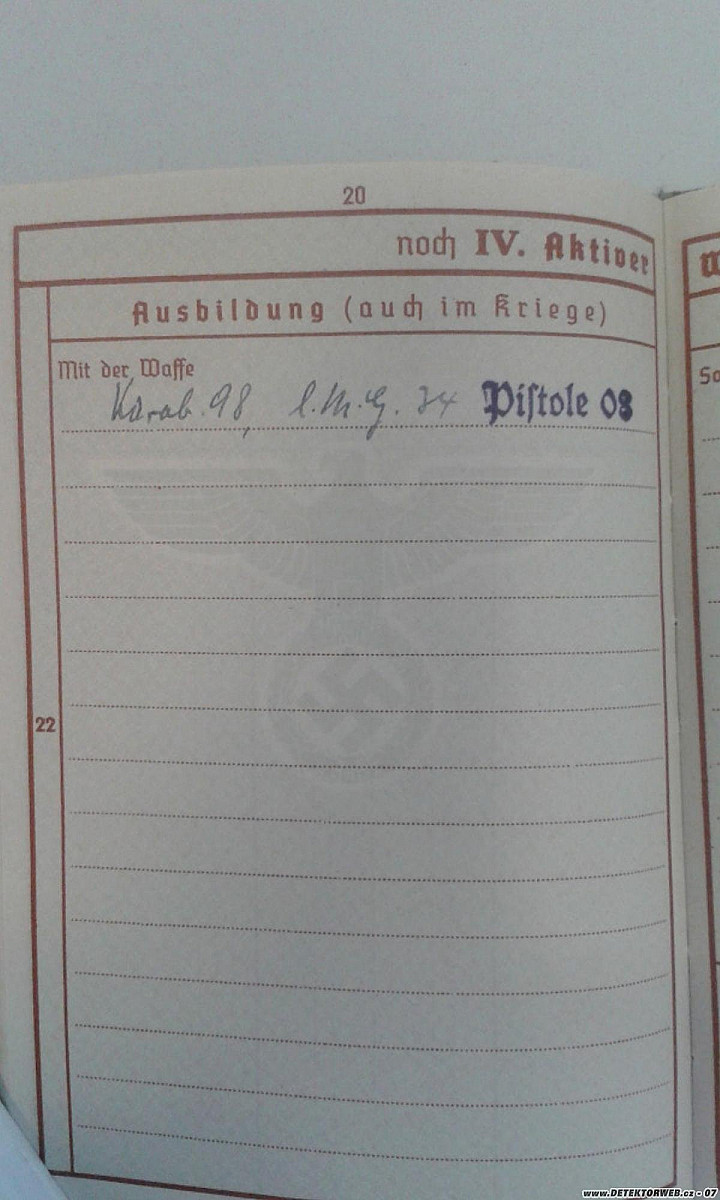 20
noch IV. Aktiver
Ausbildung (auch im Kriege)
Mit der Waffe
Karab. 98, l. M. G. 34 Pistole 08
22
www.DETEKTORWEB.cz - 07